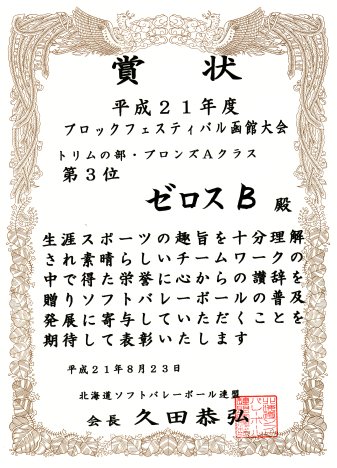 賞状
平成21年度
ブロックフェスティバル函館大会
トリムの部・ブロンズAクラス
第3位
ゼロスB 殿
生涯スポーツの趣旨を十分理解
され素晴らしいチームワークの
中で得た栄誉に心からの讃辞を
贈りソフトバレーボールの普及
発展に寄与していただくことを
期待して表彰いたします
平成21年8月23日
北海道ソフトバレーボール連盟
会長 久田恭弘